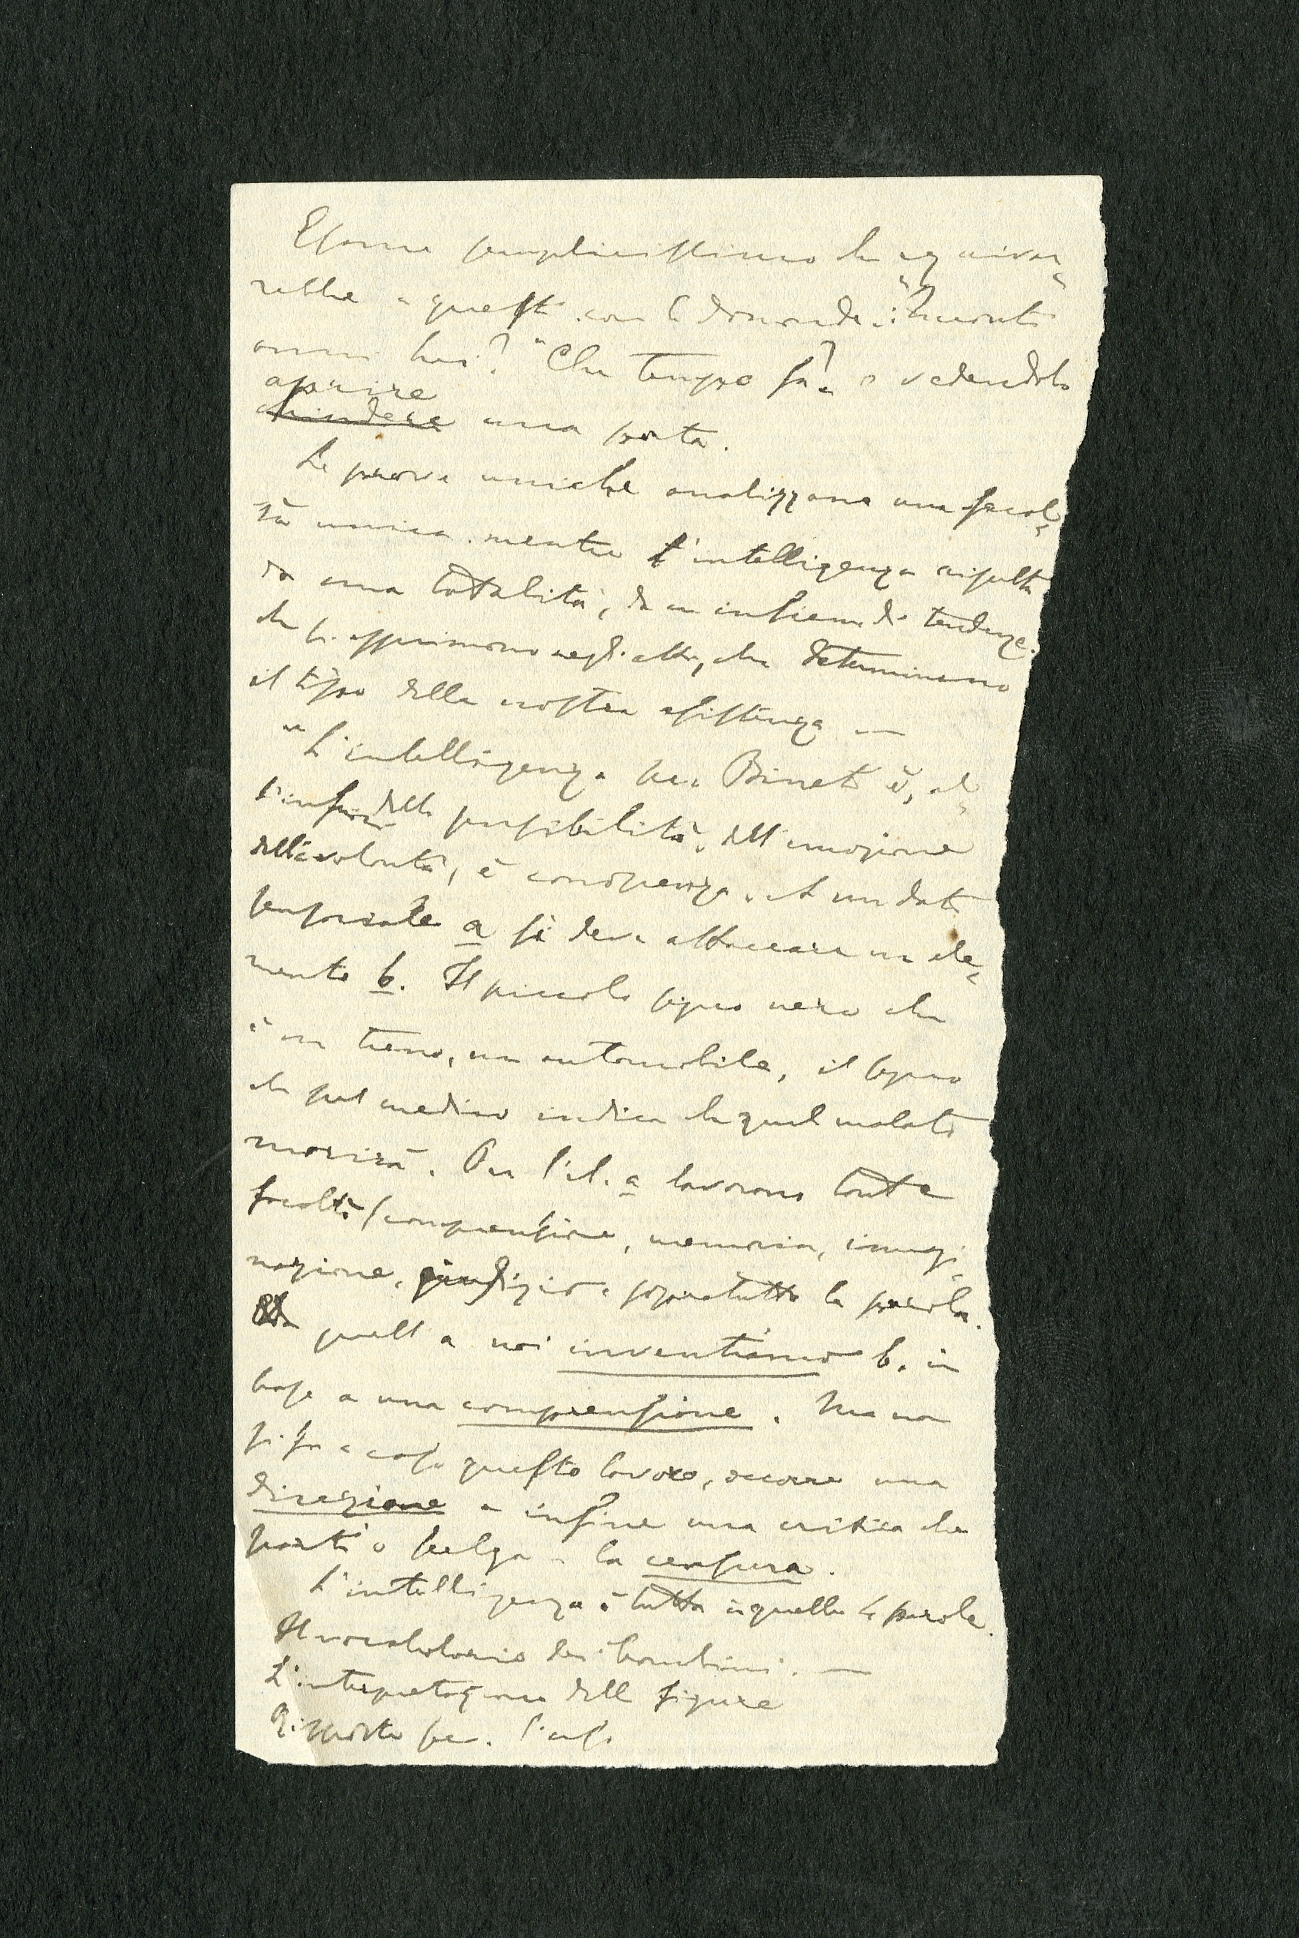 Esame semplicissimo che equivar=
rebbe a questi con le domande: "Quanti
anni hai?" "Che tempo fa? o vedendolo
aprire
chiudere una porta.
Le prove uniche analizzano una facol=
tà unica mentre l'intelligenza risulta
da una totalità, da un insieme di tendenze
che si esprimono negli atti, che determinano
il tipo della nostra esistenza —
"L'intelligenza per Binet è, al=
l'infuori della sensibilità, dell'emozione
della volontà, è conoscenza. A un dato
sensoriale a si deve attaccare un ele=
mento b. Il piccolo segno nero che
è un treno, un automobile, il segno
che pel medico indica che quel malato
morirà. Per l'el. a lavorano tante
facoltà (comprensione, memoria, immagi=
nazione, giudizio e sopratutto la parola.
quell a noi inventiamo b. in
base a una comprensione. Ma non
si fa a caso questo lavoro, occorre una
direzione e infine una critica che
porti o scelga - la censura.
L'intelligenza è tutta in quelle 4 parole.
Il vocabolario dei bambini. —
L'interpretazione delle figure
Risposte per l'uso